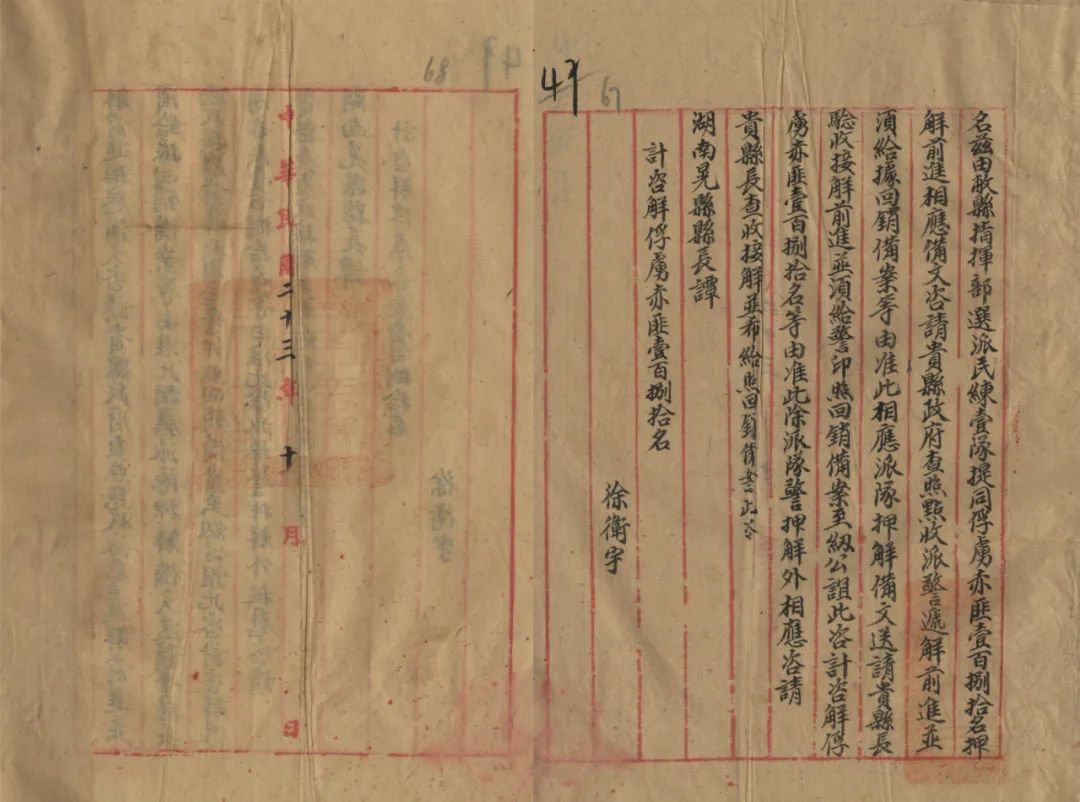 名茲由敝縣指揮部選派民練壹隊提同俘虜赤匪壹百捌拾名押
解前進相應備文咨請貴縣政府查照點收派警遞解前進並
須給據回銷備案等由准此相應派隊押解備文送請貴縣長
驗收接解前進並須給警印照回銷備案至紉公誼此咨計咨解俘
虜赤匪壹百捌拾名等由准此除派隊警押解外相應咨請
貴縣長查收接解並希給照回銷備查此咨
湖南晃縣縣長譚
計咨解俘虜赤匪壹百捌拾名
徐衛宇
47
67
中華民國二十三年十月 日
68